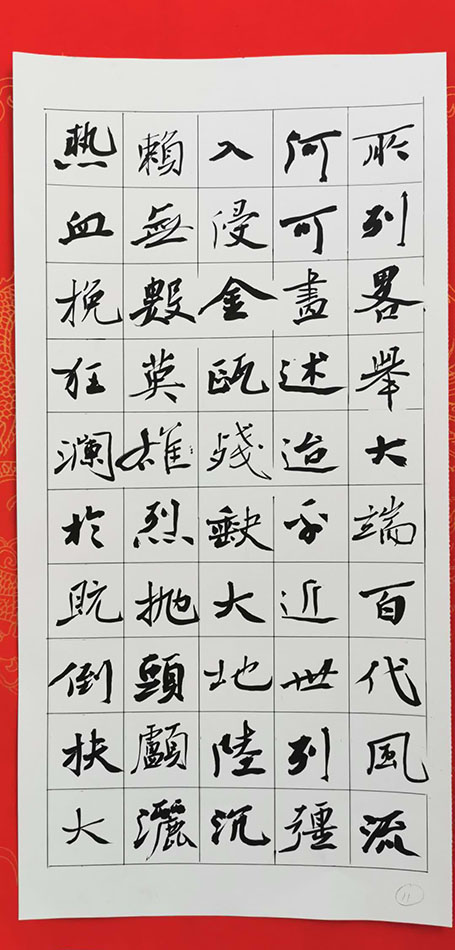 所列畧舉大端百代風流
何可盡述迨乎近世列疆
入侵金甌殘缺大地陸沉
賴無數英雄烈抛頭顱灑
热血挽狂澜於既倒扶大
11